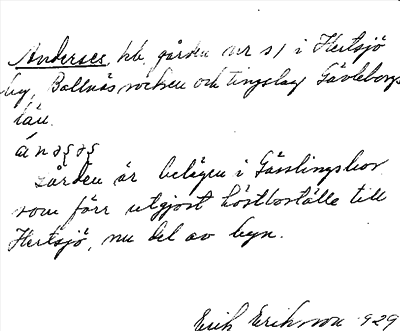 Anderses, hb. gården nr 51 i Hertsjö
by, Bollnäs socken och tingslag Gävleborgs
län.
Gården är belägen i Gässlingsbor
som förr utgjort höstboställe till
Hertsjö, nu del av byn.
Erik Eriksson 929